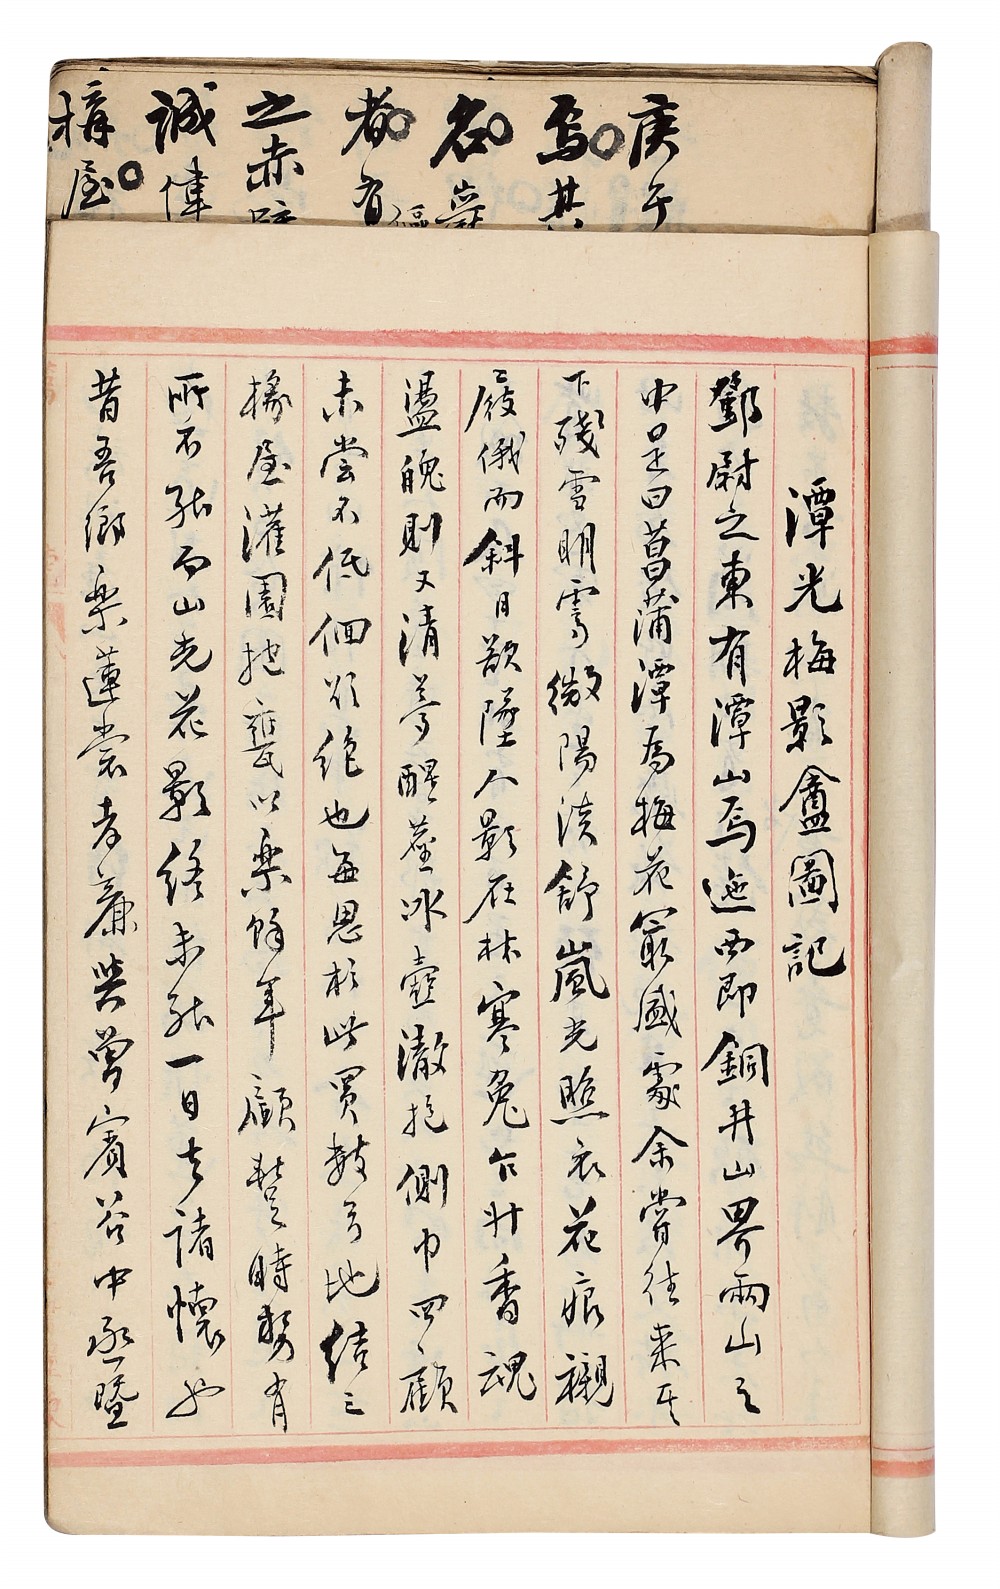 庚午
烏其
名
者有
之赤
誠偉
構屋
潭光梅影盦圖記
鄧尉之東有潭山焉迤西即銅井山界兩山之
中是曰菖蒲潭為梅花最盛處余嘗往來其
下殘雪明霽微陽淡舒嵐光照衣花痕襯
屐俄而斜日欲墜人影在林寒兔乍升香魂
盪魄則又清夢醒塵冰壺澈抱側巾四顧
未嘗不低佪欲絕也每思於此買數弓地結三
椽屋灌園抱甕以樂餘年顧塹時勢有
所不能而山光花影終未能一日去諸懷也
昔吾鄉樂蓮裳孝廉與曾賓谷中丞暨